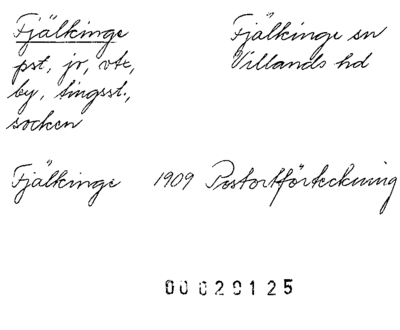 Fjälkinge
pst, jr, vte,
by, tingsst.,
socken
Fjälkinge sn
Villands hd
Fjälkinge 1909 Postortförteckning
00020125